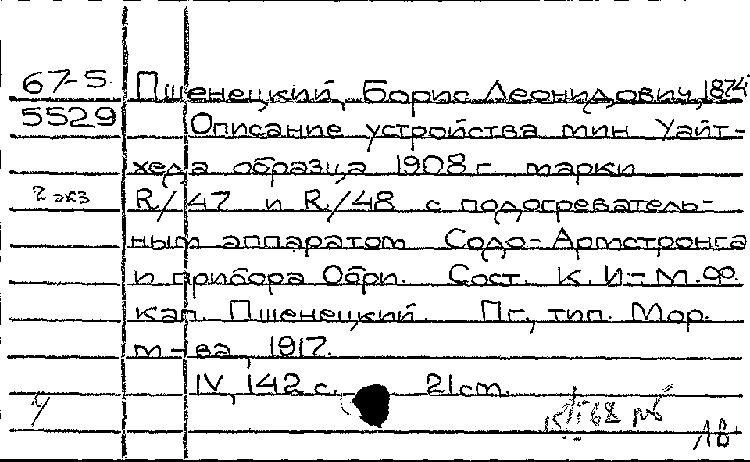 67-5 Пшенецкий, Борис Леонидович, 1874
5529 Описание устройства мин Уайт-
хеда образца 1908 г марки
2 экз R/47 и R/48 с подогреватель-
ным аппаратом Содо-Армстронга
и прибора Обри. Сост. К. И-М.Ф.
кап. Пшенецкий. Пг., тип. Мор.
м-ва, 1917.
IV, 142 с. 21 см.
68
ЛВ